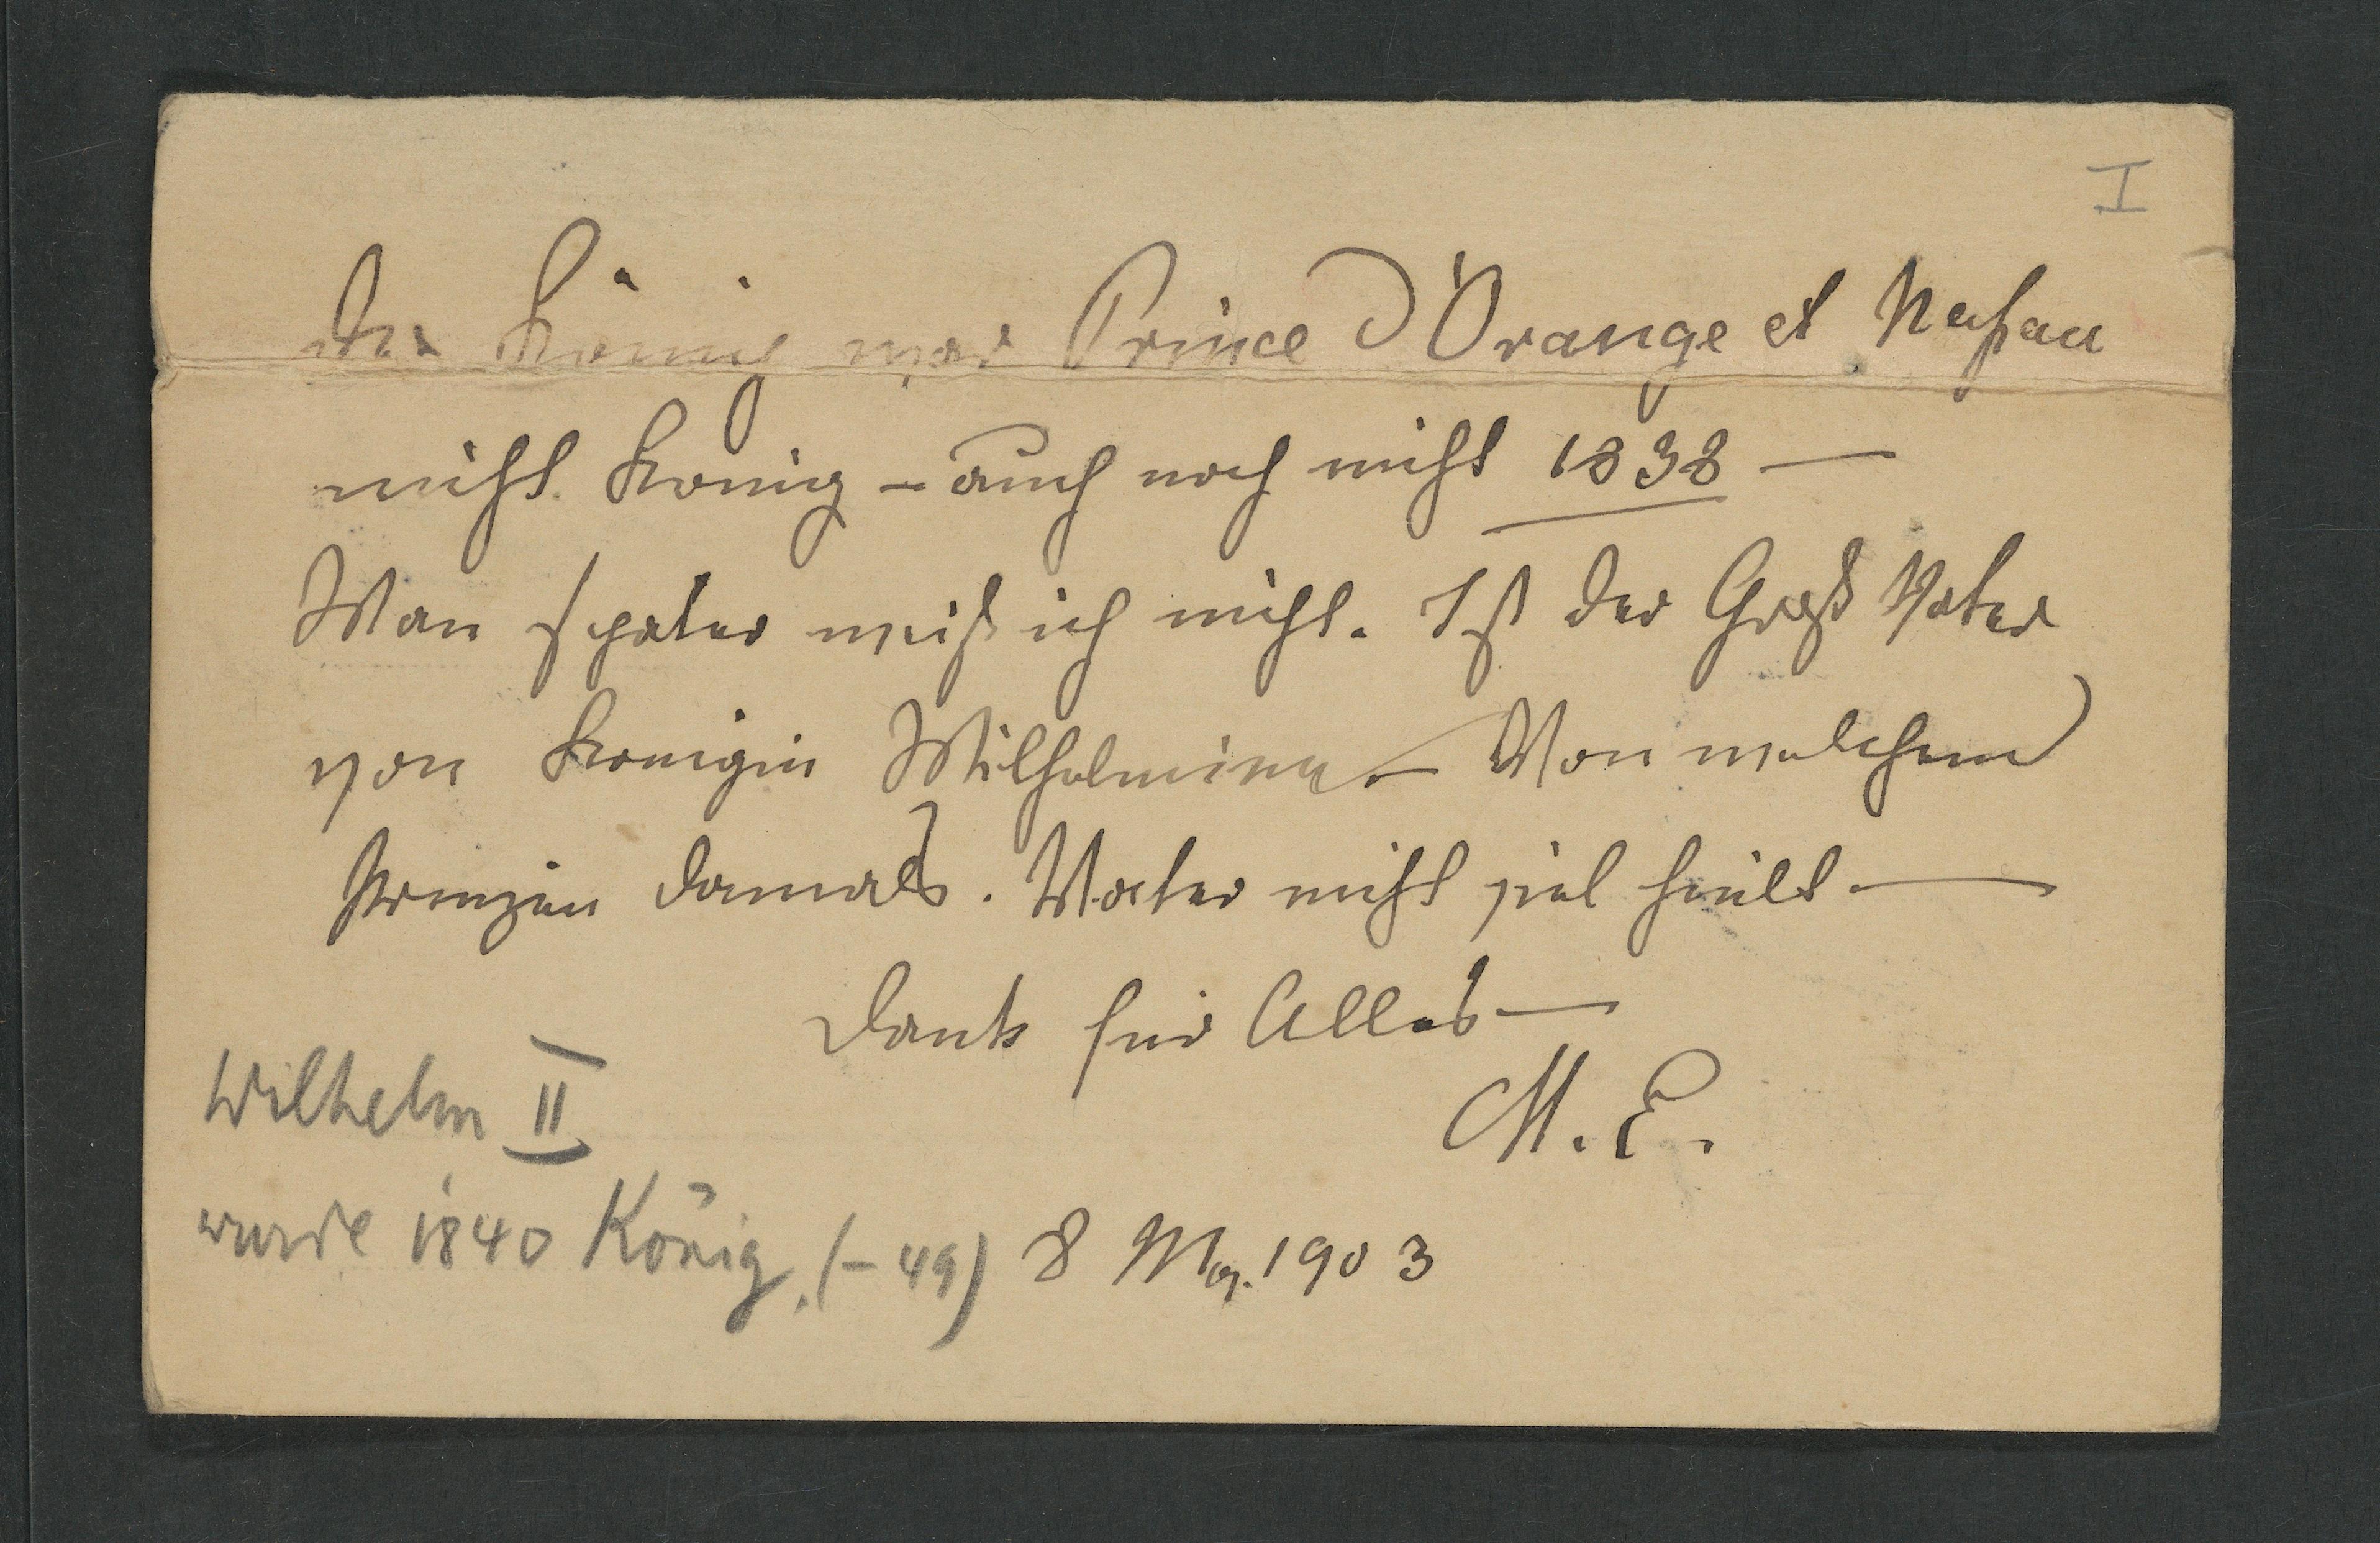 I
Der König war Prince D'Orange et Naßau
nicht König – auch noch nicht 1838 —
Wan später weiß ich nicht. Ist der Groß Vater
von Königin Wilhelmina – Von welchem
Prinzen damals. Vater nicht viel hielt —
Dank für Alles —
M. E.
Wilhelm II
wurde 1840 König. (– 49) 8 My. 1903